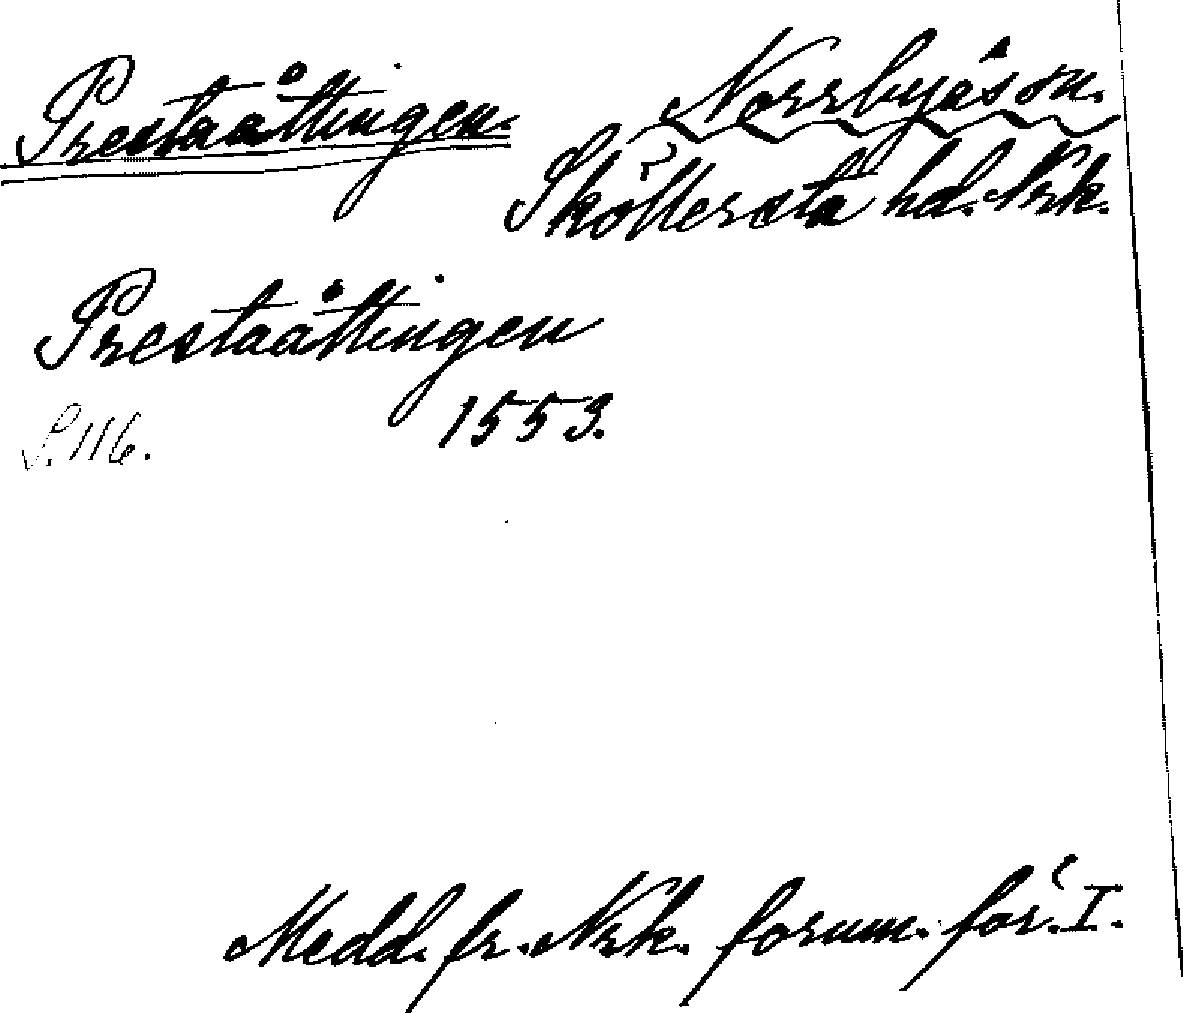 Prestaåttingen.
Norrbyås sn.
Sköllersta hd. Nrk.
Prestaåttingen
1553.
S. 116.
Medd. fr. Nrk. fornm. för. I.